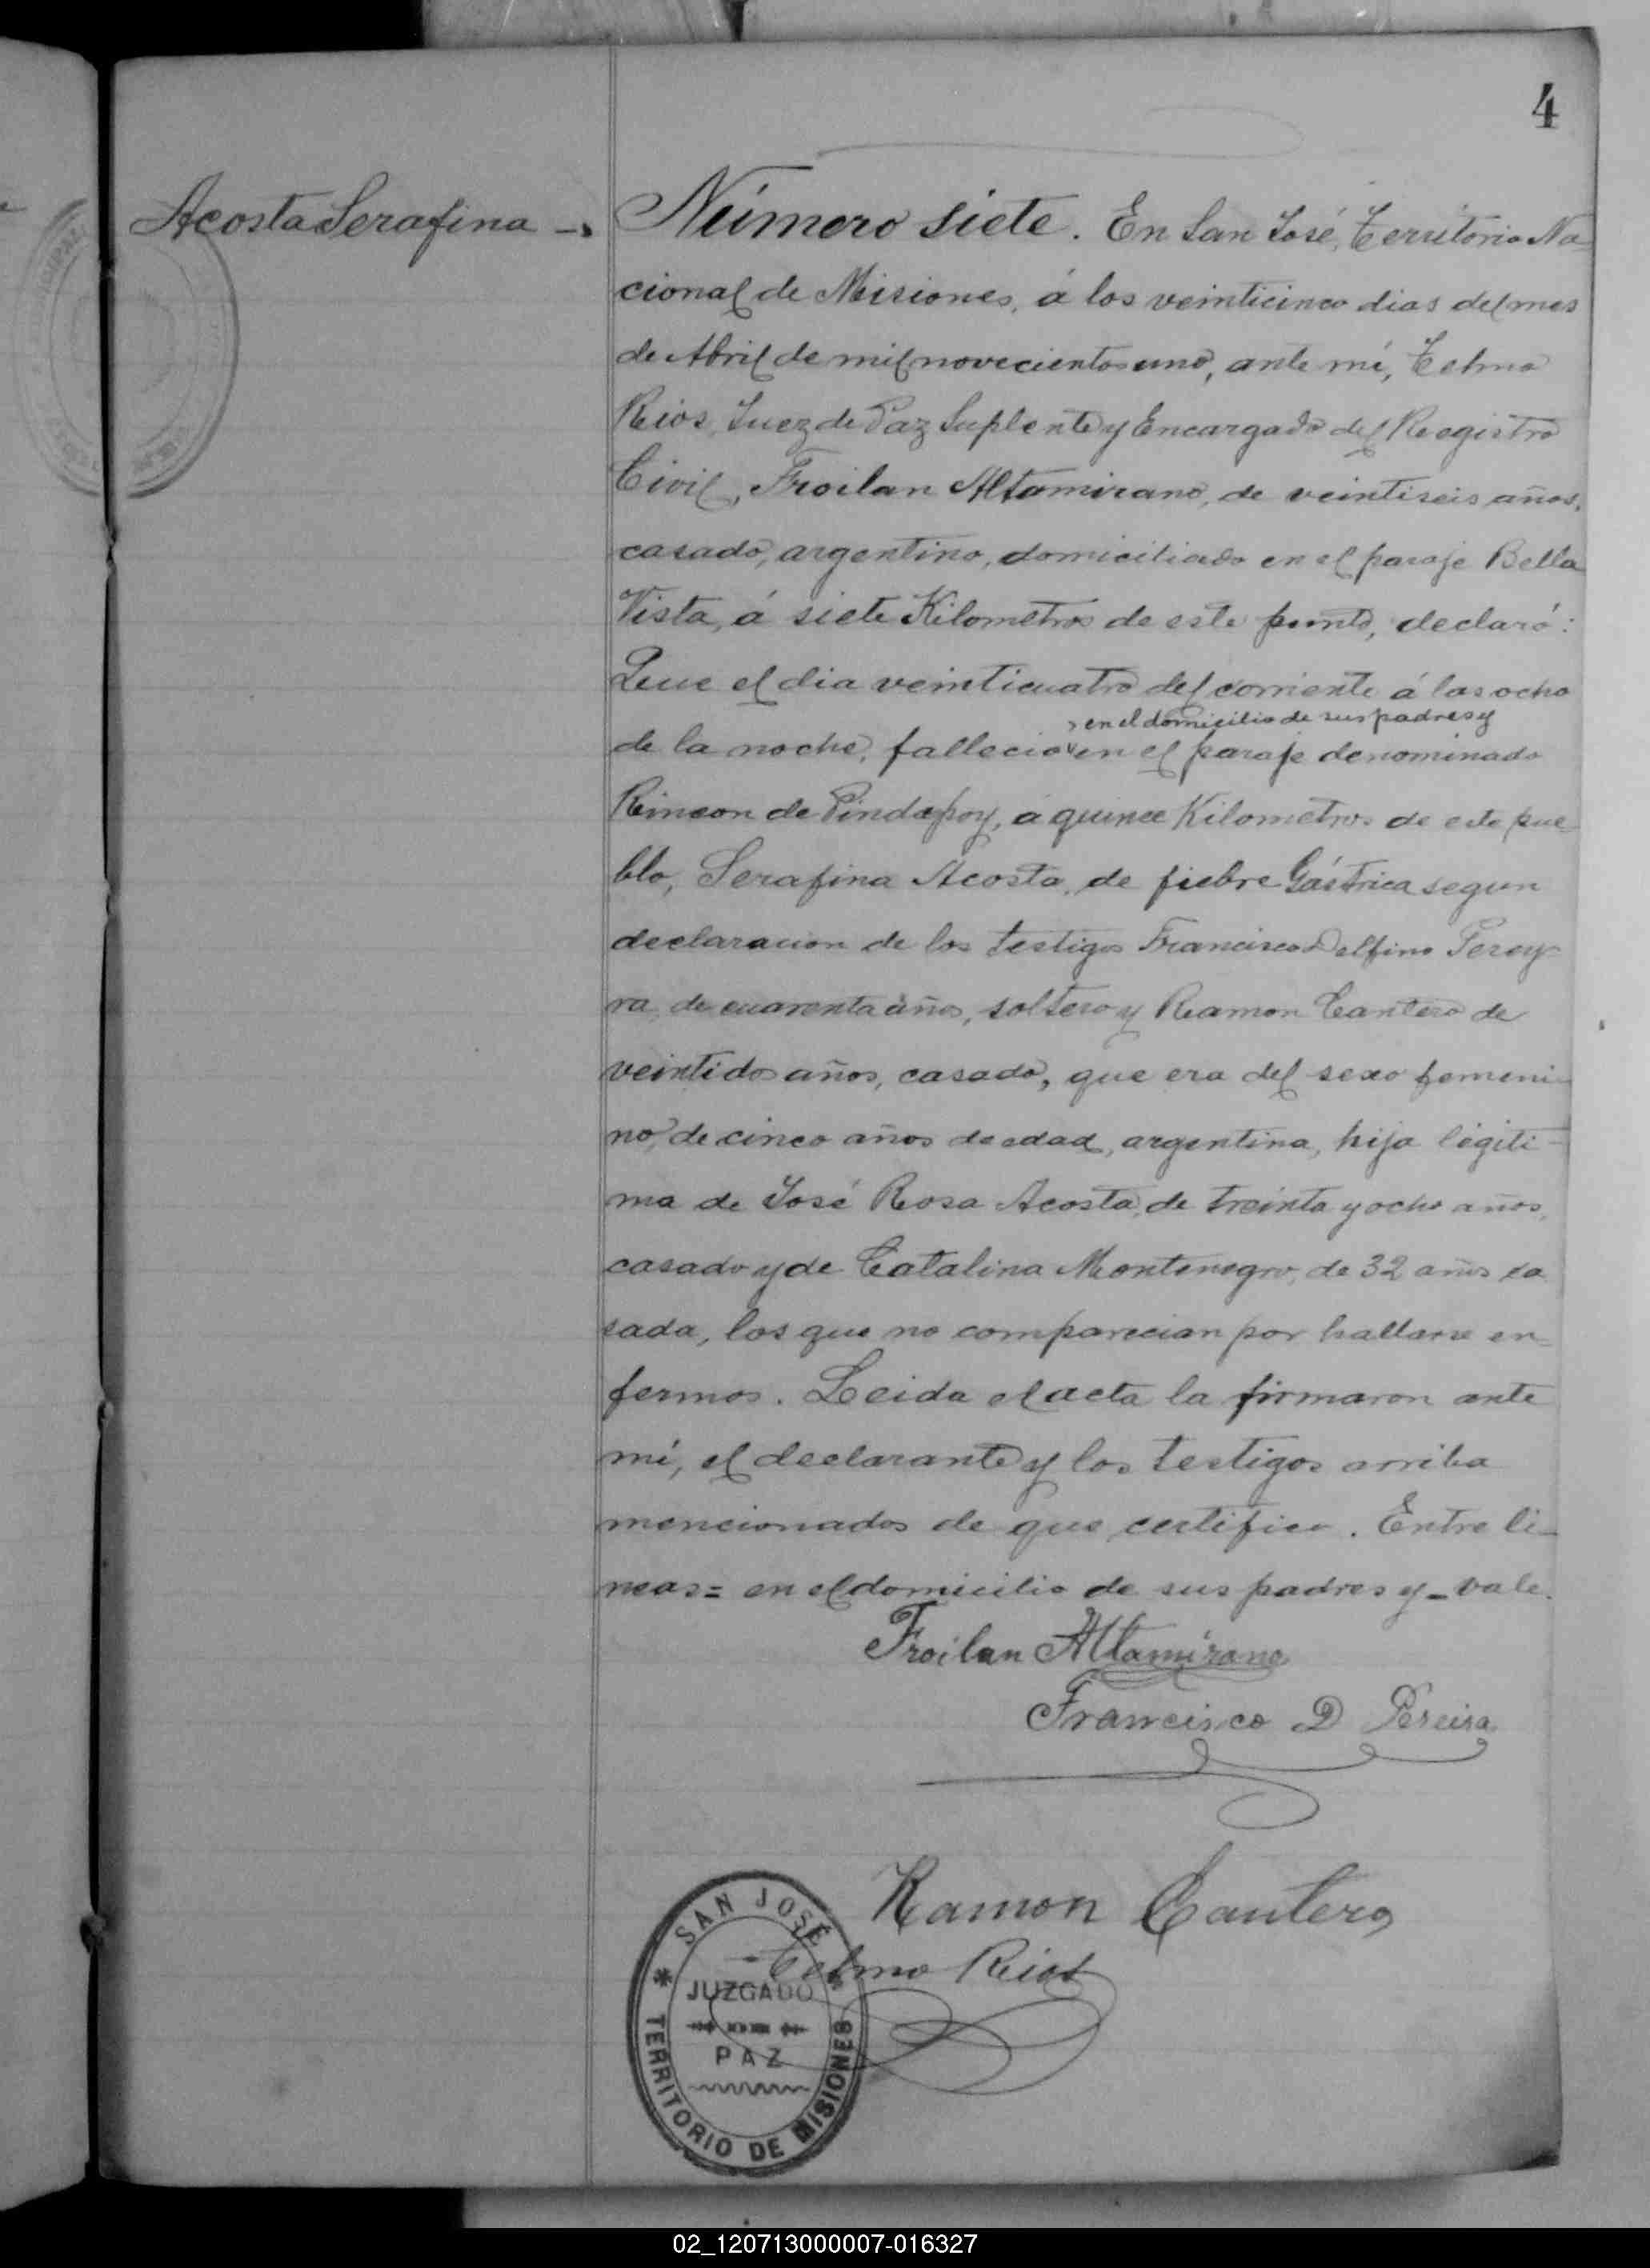 4
Acosta Serafina
Número siete. En San José, Territorio Na-
cional de Misiones, á los veinticinco dias del mes
de Abril de mil novecientos uno, ante mí, Telmo
Rios, Juez de Paz Suplente y Encargado del Registro
Civil, Froilan Altamirano, de veintiseis años,
casado, argentino, domiciliado en el paraje Bella
Vista, á siete Kilometros de este punto, declaró:
Que el dia veinticuatro del corriente á las ocho
, en el domicilio de sus padres y
de la noche, fallecio en el paraje denominado
Rincon de Pindapoy, a quince Kilometros de este pue-
blo, Serafina Acosta, de fiebre Gástrica segun
declaracion de los testigos Francisco Delfino Perey-
ra, de cuarenta años, soltero y Ramon Cantero de
veintidos años, casado, que era del sexo femeni-
no, de cinco años de edad, argentina, hija legiti-
ma de José Rosa Acosta, de treinta y ocho años,
casado y de Catalina Montenegro, de 32 años ca
sada, los que no comparecian por hallarse en-
fermos. Leida el acta la firmaron ante
mí, el declarante y los testigos arriba
mencionados de que certifico. Entre li-
neas= en el domicilio de sus padres y - vale.
Froilan Altamirano
Francisco D Pereira
Ramon Cantero
Telmo Rios
SAN JOSÉ
JUZGADO
PAZ
TERRITORIO DE MISIONES
02_120713000007-016327